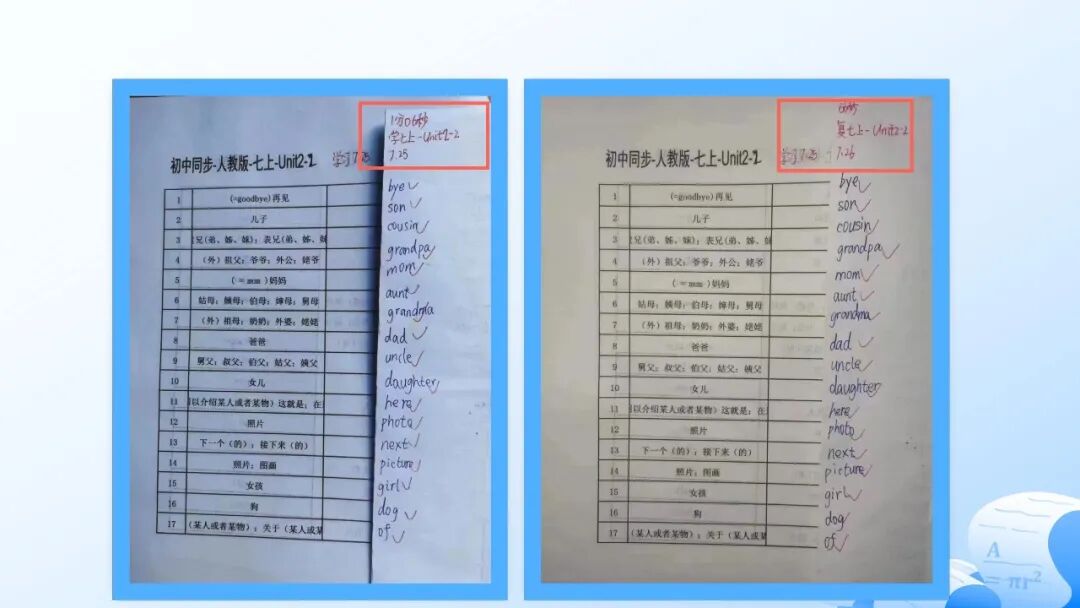 1分06秒
学七上-Unit2-2
7.25
初中同步-人教版-七上-Unit2-2 学习7.25
1 (=goodbye)再见 bye
2 儿子 son
3 兄(弟、姊、妹)；表兄(弟、姊、妹 cousin
4 （外）祖父；爷爷；外公；姥爷 grandpa
5 ( = mum )妈妈 mom
6 姑母；姨母；伯母；婶母；舅母 aunt
7 （外）祖母；奶奶；外婆；姥姥 grandma
8 爸爸 dad
9 舅父；叔父；伯父；姑父；姨父 uncle
10 女儿 daughter
11 以介绍某人或者某物）这就是；在 here
12 照片 photo
13 下一个（的）；接下来（的） next
14 照片；图画 picture
15 女孩 girl
16 狗 dog
17 （某人或者某物）；关于（某人或某 of
复七上-Unit2-2
7.26
初中同步-人教版-七上-Unit2-2 学习7.25
1 (=goodbye)再见 bye
2 儿子 son
3 兄(弟、姊、妹)；表兄(弟、姊、妹 cousin
4 （外）祖父；爷爷；外公；姥爷 grandpa
5 ( = mum )妈妈 mom
6 姑母；姨母；伯母；婶母；舅母 aunt
7 （外）祖母；奶奶；外婆；姥姥 grandma
8 爸爸 dad
9 舅父；叔父；伯父；姑父；姨父 uncle
10 女儿 daughter
11 以介绍某人或者某物）这就是；在 here
12 照片 photo
13 下一个（的）；接下来（的） next
14 照片；图画 picture
15 女孩 girl
16 狗 dog
17 （某人或者某物）；关于（某人或某 of
A
= πr²